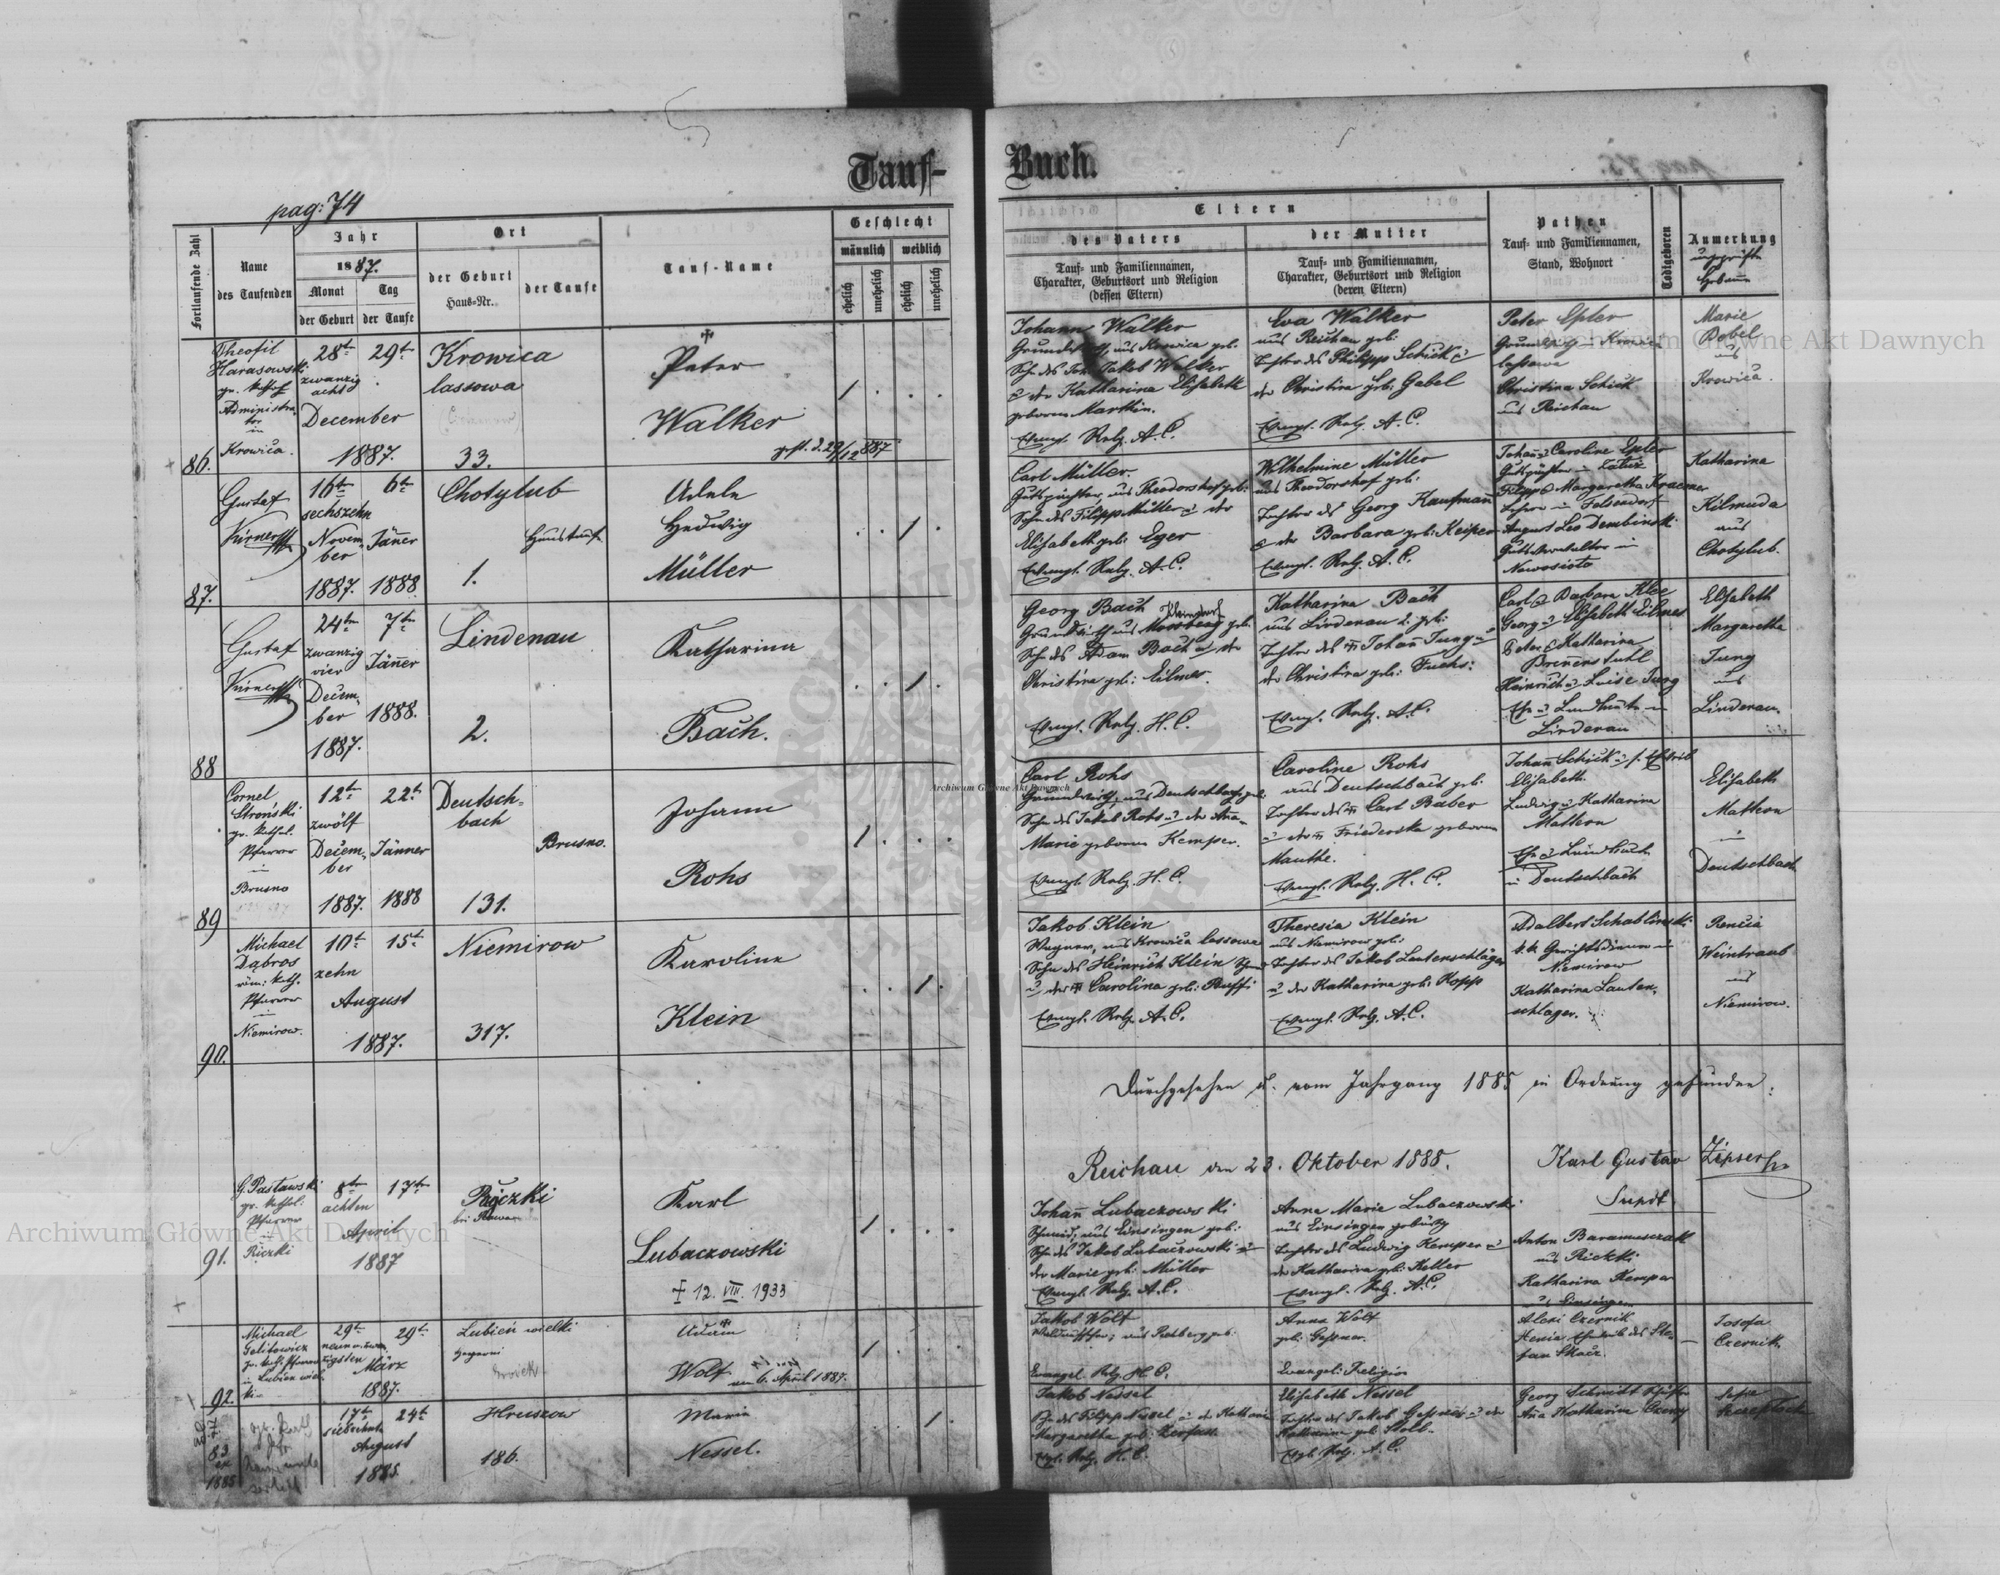 Tauf-
Buch.
pag: 74
Fortlaufende Zahl
Name
des Taufenden
Jahr
1887.
Monat
Tag
der Geburt
der Taufe
Ort
der Geburt
Haus-Nr.
der Taufe
Tauf-Name
Geschlecht
männlich
weiblich
ehelich
unehelich
ehelich
unehelich
Eltern
des Vaters
Tauf- und Familiennamen,
Charakter, Geburtsort und Religion
(dessen Eltern)
der Mutter
Tauf- und Familiennamen,
Charakter, Geburtsort und Religion
(deren Eltern)
Pathen
Tauf- und Familiennamen,
Stand, Wohnort
Todtgeboren
Anmerkung
86.
Theofil
Harasowski
gr. kathol.
Administra
tor
in
Krowica.
28te
zwanzig
acht
29te
December
1887.
Krowica
lassowa
33.
Peter
Walker
gest. d. 29/12 887
1 . . .
Johann Walker
aus Krowica geb.
Jakob Walker
u der Katharina Elisabeth
geborene Markin.
Evangl. Relg. A. C.
Eva Walker
aus Reichau geb.
Tochter des Philipp Schick u
der Christina geb. Gabel
Evangl. Relg. A. C.
Peter Epler
Krowica
lassowa
Christina Schick
aus Reichau
Marie
Bobel
aus
Krowica.
87.
Gustaf
16te
sechszehn
Novem-
ber
1887.
6te
Jäner
1888
Chotylub
Haustaufe
1.
Adele
Hedwig
Müller
. . 1 .
Carl Müller
Gutspächter, aus Theodorshof geb.
Sohn des Filipp Müller u der
Elisabeth geb. Eger
Evangl. Relg. A. C.
Wilhelmine Müller
aus Theodorshof geb.
Tochter des Georg Kaufmann
u der Barbara geb: Keiper
Evangl. Relg. A. C.
Johann u Caroline Epler
Gutspächter in
Filipp u Margaretha Kraemer
Lehrer in Felsendorf
August Leo Dembinski
Gutsverwalter in
Nowosioto
Katharina
Kilmuda
aus
Chotylub.
88
Gustaf
24ten
zwanzig
vier
Decem-
ber
1887.
7ten
Jäner
1888.
Lindenau
2.
Katharina
Bach.
. . 1 .
Georg Bach
Grundwirth aus Moosberg geb
Sohn des Adam Bach u der
Christina geb: Eilmer.
Evangl. Relg. H. C.
Katharina Bach
aus Lindenau geb:
Tochter des Johann Jung u
der Christina geb: Fuchs:
Evangl. Relg. A. C.
Carl u Barbara Klee
Georg u Elisabeth Eilmer
Peter u Katharina
Brenenstuhl
Heinrich u Luise Jung
Lindenau
Elisabeth
Margaretha
Jung
aus
Lindenau.
89
Cornel
Stroński
gr. kathol.
Pfarrer
in
Brusno
12te
zwölf
Decem-
ber
1887.
22te
Jänner
1888
Deutsch-
bach
Brusno.
131.
Johann
Rohs
1 . . .
Carl Rohs
Grundwirth, aus Deutschbach geb.
Sohn des Jakob Rohs u der Ana
Marie geborene Kemper.
Evangl. Relg. H. C.
Caroline Rohs
aus Deutschbach geb.
Tochter des Carl Baber
u der Friederika geborene
Manthe.
Evangl. Relg. H. C.
Johann Schick u
Elisabeth
Ludwig u Katharina
Mattern
in Deutschbach
Elisabeth
Mattern
in
Deutschbach
90.
Michael
Dąbros
röm: kath.
Pfarrer
in
Niemirow.
10te
zehn
15te
August
1887.
Niemirow
317.
Karoline
Klein
. . 1 .
Jakob Klein
Wagner, aus Krowica lassowa
Sohn des Heinrich Klein
u der Carolina geb: Buffi
Evangl. Relg. A. C.
Theresia Klein
aus Niemirow geb:
Tochter des Jakob Lautenschläger
u der Katharina geb: Kopp
Evangl. Relg. A. C.
Adalbert Schablinski
k. k. Gerichtsdiener in
Niemirow
Katharina Lauten-
schlager.
Rencia
Weintraub
aus
Niemirow.
Durchgesehen u. vom Jahrgang 1885 in Ordnung gefunden:
Reichau den 23. Oktober 1888.
Karl Gustav Zipser
Supdt.
91.
G. Pasławski
gr. kathol.
Pfarrer
in
Riczki
8ten
achten
17ten
April
1887
Riczki
bei Rawa
Karl
Lubaczowski
+ 12. VIII. 1933
1 . . .
Johann Lubaczowski
Schmid, aus Einsingen geb:
Sohn des Jakob Lubaczowski u
der Marie geb: Müller
Evangl. Relg. A. C.
Anna Marie Lubaczowski
aus Einsingen gebürtig
Tochter des Ludwig Kemper u
der Katharina geb: Keller
Evangl. Relg. A. C.
Anton Baramuszak
aus Riczki
Katharina Kemper
aus Einsingen
92.
Michael
Gelitowicz
gr. kath. Pfarrer
in Lubien wiel-
ki
29te
29te
März
1887.
Lubień wielki
Adam
Wolf
am 6. April 1887.
1 . . .
Jakob Wolf
Evangel. Relg. H. C.
Anna Wolf
geb. Gessner.
Evangel: Religion
Alexi Czernik
Stefan Skocz.
Josefa
Czernik.
ad Z
83
ex
1885
17te
siebzehnte
24te
August
1885
Hruszow
186.
Maria
Nessel.
1 .
Jakob Nessel
Sohn des Filipp Nessel u der Katharina
Margaretha geb: Zerfass.
Evgl. Relg. H. C.
Elisabeth Nessel
Tochter des Jakob Gessner u der
Katharina geb: Stoll.
Evgl. Relg. A. C.
Georg Schmidt
Ana Katharina Czerny
Archiwum Główne Akt Dawnych
Archiwum Główne Akt Dawnych
Archiwum Główne Akt Dawnych